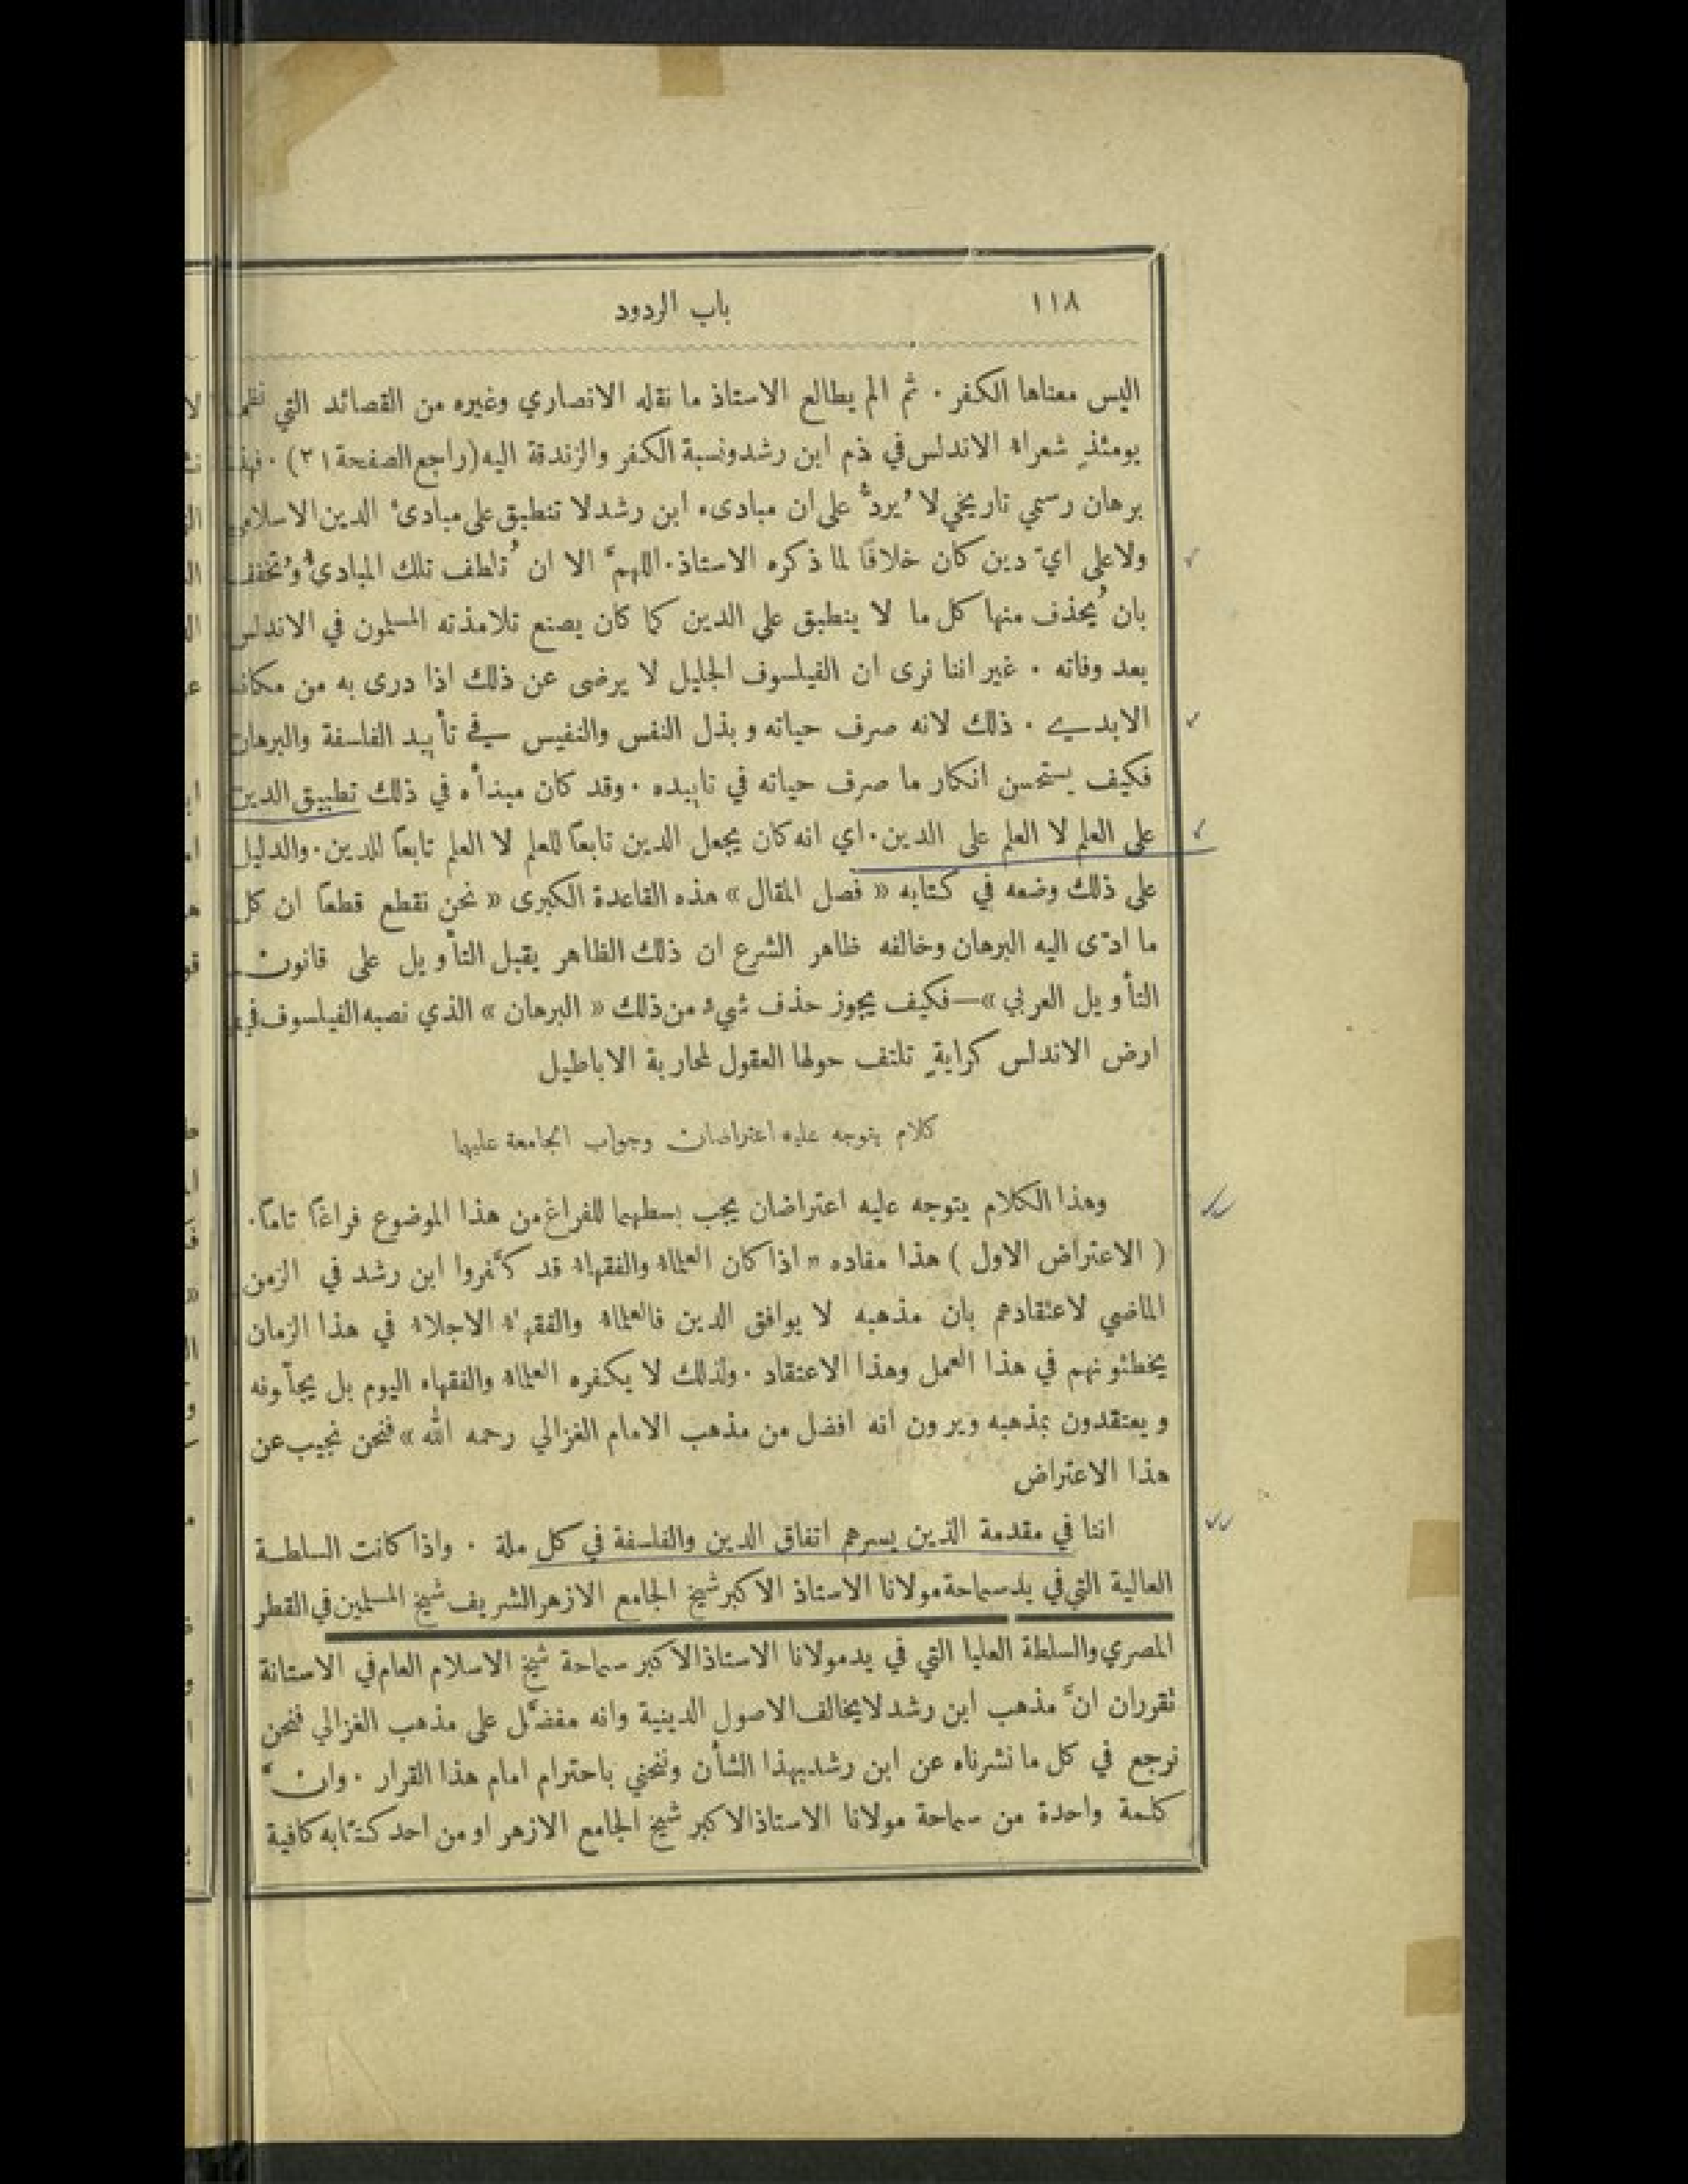 ١١٨
باب الردود
اليس معناها الكفر . ثم الم يطالع الاستاذ ما نقله الانصاري وغيره من القصائد التي نظمها
يومئذٍ شعراء الاندلس في ذم ابن رشد ونسبة الكفر والزندقة اليه (راجع الصفحة ٢١) . فهذا
برهان رسمي تاريخي لا يُردُّ على ان مبادىء ابن رشد لا تنطبق على مبادئ الدين الاسلامي
ولا على ايّ دين كان خلافًا لما ذكره الاستاذ . اللهمَّ الا ان تُلطف تلك المبادئُ وتُخفف
بان يُحذف منها كل ما لا ينطبق على الدين كما كان يصنع تلامذته المسلمون في الاندلس
بعد وفاته . غير اننا نرى ان الفيلسوف الجليل لا يرضى عن ذلك اذا درى به من مكانه
الابدي . ذلك لانه صرف حياته وبذل النفس والنفيس في تأييد الفلسفة والبرهان
فكيف يستحسن انكار ما صرف حياته في تاييده . وقد كان مبدأه في ذلك تطبيق الدين
على العلم لا العلم على الدين . اي انه كان يجعل الدين تابعًا للعلم لا العلم تابعًا للدين . والدليل
على ذلك وضعه في كتابه « فصل المقال » هذه القاعدة الكبرى « نحن نقطع قطعًا ان كل
ما ادّى اليه البرهان وخالفه ظاهر الشرع ان ذلك الظاهر يقبل التأويل على قانون
التأويل العربي » — فكيف يجوز حذف شيء من ذلك « البرهان » الذي نصبه الفيلسوف في
ارض الاندلس كرايةٍ تلتف حولها العقول لمحاربة الاباطيل
كلام يتوجه عليه اعتراضان وجواب الجامعة عليها
وهذا الكلام يتوجه عليه اعتراضان يجب بسطهما للفراغ من هذا الموضوع فراغًا تامًا .
( الاعتراض الاول ) هذا مفاده « اذا كان العلماء والفقهاء قد كفَّروا ابن رشد في الزمن
الماضي لاعتقادهم بان مذهبه لا يوافق الدين فالعلماء والفقهاء الاجلاء في هذا الزمان
يخطئونهم في هذا العمل وهذا الاعتقاد . ولذلك لا يكفره العلماء والفقهاء اليوم بل يجلّونه
ويعتقدون بمذهبه ويرون انه افضل من مذهب الامام الغزالي رحمه الله » فنحن نجيب عن
هذا الاعتراض
اننا في مقدمة الذين يسرهم اتفاق الدين والفلسفة في كل ملة . واذا كانت السلطة
العالية التي في يد سماحة مولانا الاستاذ الاكبر شيخ الجامع الازهر الشريف شيخ المسلمين في القطر
المصري والسلطة العليا التي في يد مولانا الاستاذ الاكبر سماحة شيخ الاسلام العام في الاستانة
تقرران انَّ مذهب ابن رشد لا يخالف الاصول الدينية وانه مفضَّل على مذهب الغزالي فنحن
نرجع في كل ما نشرناه عن ابن رشد بهذا الشأن وننحني باحترام امام هذا القرار . وانَّ
كلمة واحدة من سماحة مولانا الاستاذ الاكبر شيخ الجامع الازهر او من احد كتّابه كافية